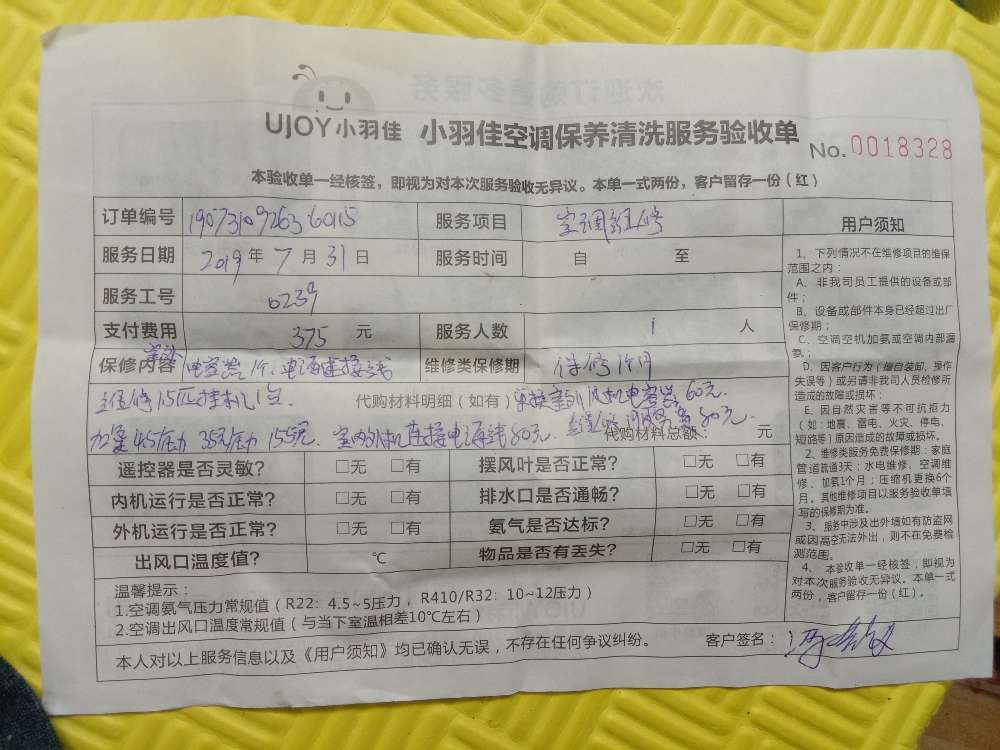 UJOY小羽佳 小羽佳空调保养清洗服务验收单
No. 0018328
本验收单一经核签，即视为对本次服务验收无异议。本单一式两份，客户留存一份（红）
订单编号 服务项目 空调维修
服务日期 2019年7月31日 服务时间 自 至
服务工号 0239
支付费用 375 元 服务人数 1 人
保修内容 电容器1个、电源连接线 维修类保修期 保修1个月
维修1.5匹挂机1台. 代购材料明细（如有） 更换室外风机电容器60元.
加氨4.5压力 35元/压力 155元. 室内外机连接电源线80元. 维修服务费80元.
代购材料总额： 元
遥控器是否灵敏？ □无 □有 摆风叶是否正常？ □无 □有
内机运行是否正常？ □无 □有 排水口是否通畅？ □无 □有
外机运行是否正常？ □无 □有 氨气是否达标？ □无 □有
出风口温度值？ ℃ 物品是否有丢失？ □无 □有
温馨提示：
1.空调氨气压力常规值（R22：4.5~5压力，R410/R32：10~12压力）
2.空调出风口温度常规值（与当下室温相差10℃左右）
本人对以上服务信息以及《用户须知》均已确认无误，不存在任何争议纠纷。 客户签名：
用户须知
1、下列情况不在维修项目的维保
范围之内：
A、非我司员工提供的设备或部
件；
B、设备或部件本身已经超过出厂
保修期；
C、空调空机加氨或空调内部漏
氨；
D、因客户行为（擅自装卸、操作
失误等）或另请非我司人员检修所
造成的故障或损坏；
E、因自然灾害等不可抗拒力
（如：地震、雷电、火灾、停电、
短路等）原因造成的故障或损坏。
2、维修类服务免费保修期：家庭
管道疏通3天；水电维修、空调维
修、加氨1个月；压缩机更换6个
月。其他维修项目以服务验收单填
写的保修期为准。
3、服务中涉及出外墙如有防盗网
或因高空无法外出，则不在免费检
测范围。
4、本验收单一经核签，即视为
对本次服务验收无异议。本单一式
两份，客户留存一份（红）。